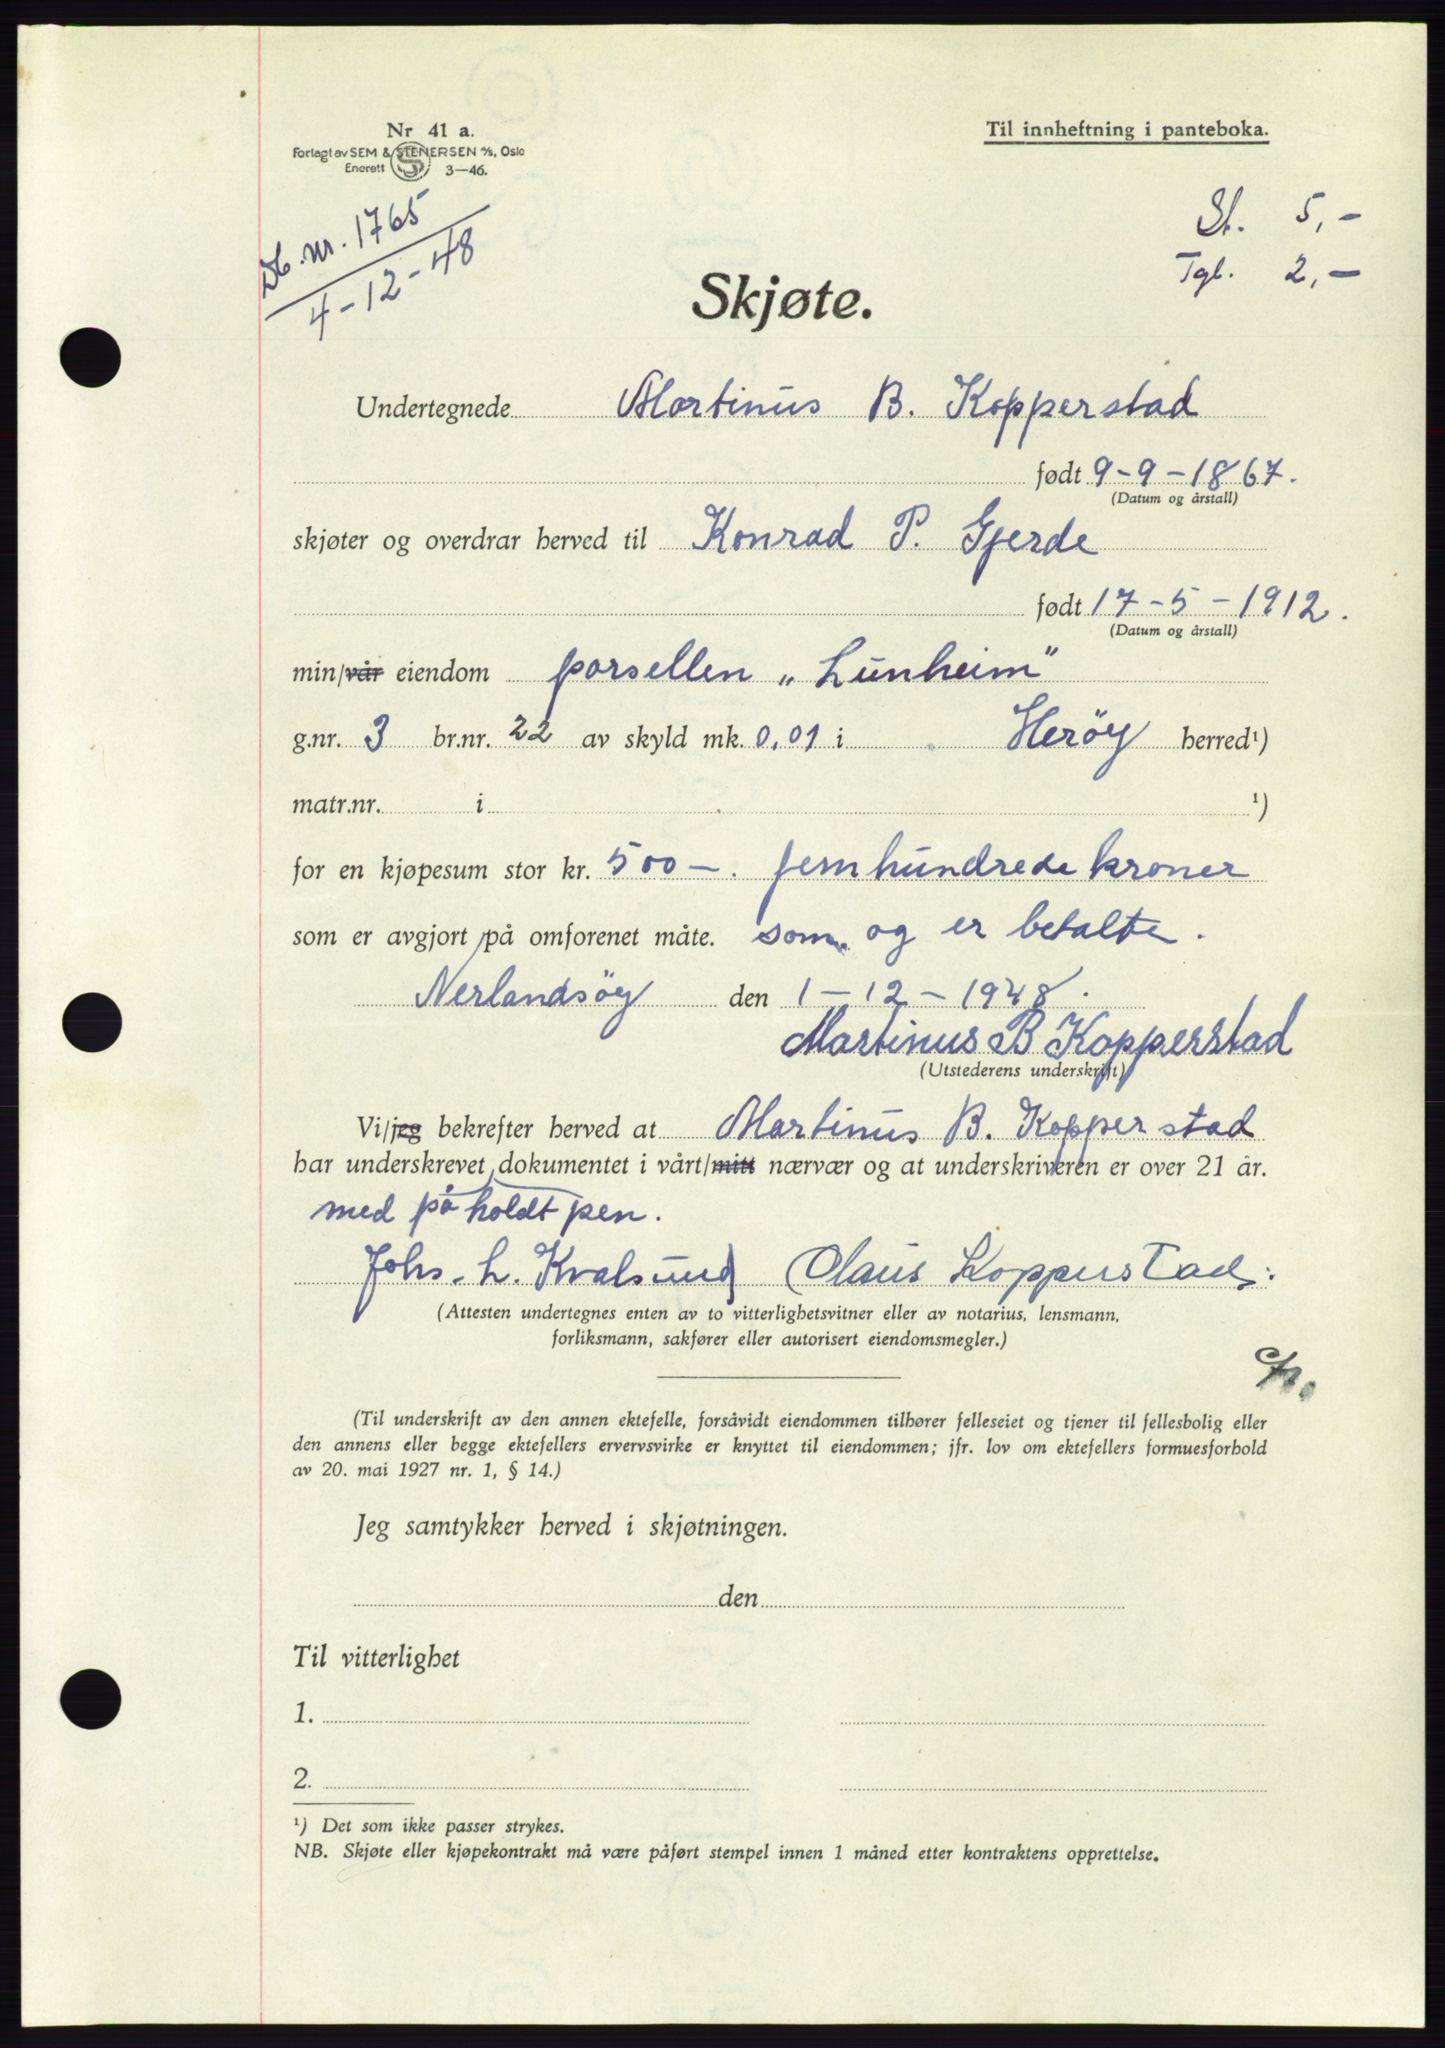 Nr 41 a.
Forlagt av SEM & STENERSEN A/S, Oslo
Enerett 3—46.
Til innheftning i panteboka.
Db. nr. 1765
4-12-48
St. 5,-
Tgl. 2,-
Skjøte.
Undertegnede Martinus B. Kopperstad
født 9-9-1867.
(Datum og årstall)
skjøter og overdrar herved til Konrad P. Gjerde
født 17-5-1912.
(Datum og årstall)
min/vår eiendom parsellen „Lunheim"
g.nr. 3 br.nr. 22 av skyld mk. 0,01 i Herøy herred¹)
matr.nr. i ¹)
for en kjøpesum stor kr. 500-. femhundrede kroner
som er avgjort på omforenet måte. som og er betalte.
Nerlandsøy den 1-12-1948.
Martinus B Kopperstad
(Utstederens underskrift)
Vi/jeg bekrefter herved at Martinus B. Kopperstad
har underskrevet dokumentet i vårt/mitt nærvær og at underskriveren er over 21 år.
med påholdt pen.
Johs. L. Kvalsund Olaus Kopperstad.
(Attesten undertegnes enten av to vitterlighetsvitner eller av notarius, lensmann,
forliksmann, sakfører eller autorisert eiendomsmegler.)
(Til underskrift av den annen ektefelle, forsåvidt eiendommen tilhører felleseiet og tjener til fellesbolig eller
den annens eller begge ektefellers ervervsvirke er knyttet til eiendommen; jfr. lov om ektefellers formuesforhold
av 20. mai 1927 nr. 1, § 14.)
Jeg samtykker herved i skjøtningen.
den
Til vitterlighet
1.
2.
¹) Det som ikke passer strykes.
NB. Skjøte eller kjøpekontrakt må være påført stempel innen 1 måned etter kontraktens opprettelse.